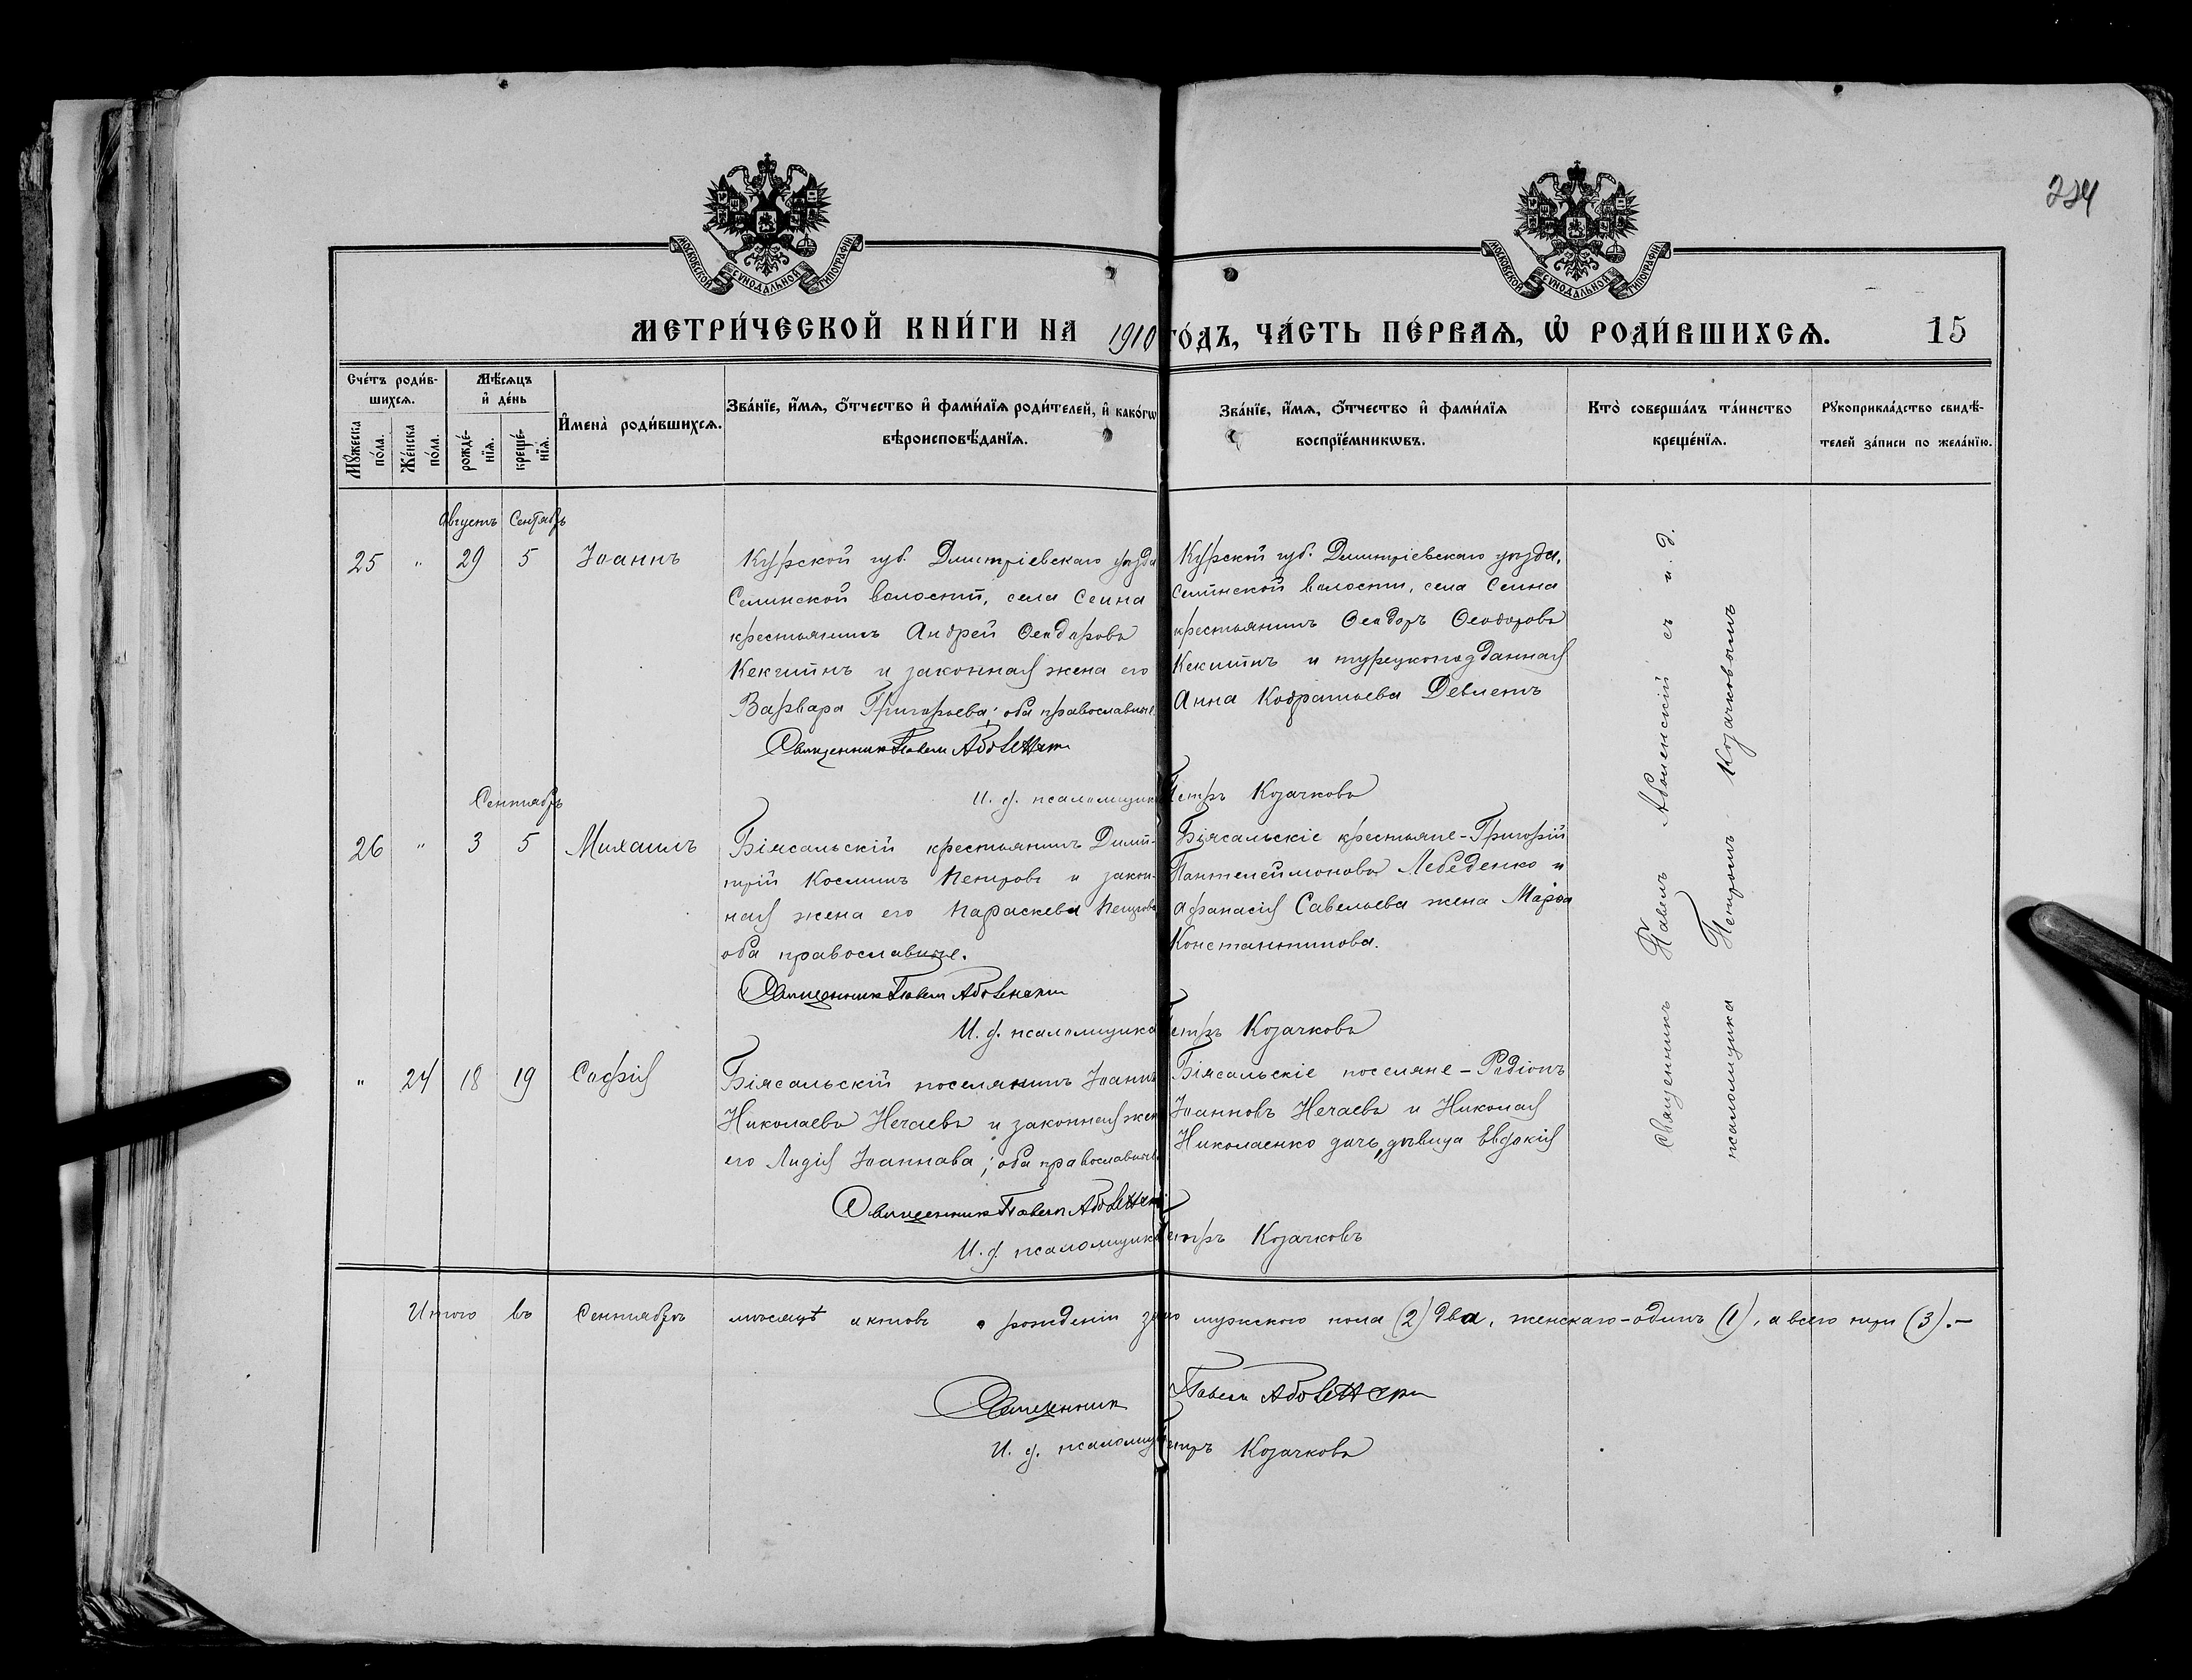 234
МОСКОВСКОЙ СѴНОДАЛЬНОЙ ТИПОГРАФІИ
МОСКОВСКОЙ СѴНОДАЛЬНОЙ ТИПОГРАФІИ
МЕТРИ́ЧЕСКОЙ КНИ́ГИ НА 1910 ГО́ДЪ, ЧА́СТЬ ПЕ́РВАѦ, Ѡ҆ РОДИ́ВШИХСѦ. 15
Счетъ роди́в-
шихсѧ.
Мꙋжеска по́ла.
Же́нска по́ла.
Мѣ́сѧцъ
и҆ де́нь
рожде́-
нїѧ.
креще́-
нїѧ.
И҆мена̀ роди́вшихсѧ.
Зва́нїе, и҆́мѧ, ѻ҆́тчество и҆ фами́лїѧ роди́телей, и҆ како́гѡ
вѣроисповѣ́данїѧ.
Зва́нїе, и҆́мѧ, ѻ҆́тчество и҆ фами́лїѧ
воспрїе́мникѡвъ.
Кто̀ соверша́лъ та́инство
креще́нїѧ.
Рꙋкоприкла́дство свидѣ́-
телей за́писи по жела́нїю.
Августъ Сентябрь
25 " 29 5 Іоаннъ
Курской губ. Дмитріевскаго уѣзда
Селинской волости, села Сеина
крестьянинъ Андрей Ѳеодоровъ
Кекшинъ и законная жена его
Варвара Григорьева; оба православные.
Священник Павел
И. д. псаломщика Петръ Козачковъ
Курской губ. Дмитріевскаго уѣзда,
Селинской волости, села Сеина
крестьянинъ Ѳеодоръ Ѳеодоровъ
Кекшинъ и турецкоподданная
Анна Кодратьева Девлетъ
Сентябрь
26 " 3 5 Михаилъ
Біясальскій крестьянинъ Дими-
трій Косминъ Петровъ и закон-
ная жена его Параскева Петрова
оба православные.
Священник Павел
И. д. псаломщика Петръ Козачковъ
Біясальскіе крестьяне - Григорій
Пантелеймоновъ Лебеденко и
Афанасія Савельева жена Марѳа
Константинова.
" 24 18 19 Софія
Біясальскій поселянинъ Іоаннъ
Николаевъ Нечаевъ и законная жена
его Лидія Іоаннова; оба православные
Священник Павел
И. д. псаломщика Петръ Козачковъ
Біясальскіе поселяне - Родіонъ
Іоанновъ Нечаевъ и Николая
Николаенко дочь, дѣвица Евдокія
Священникъ Павелъ Аболенскій съ и. д.
псаломщика Петромъ Козачковымъ
Итого въ Сентябрѣ мѣсяцѣ актовъ о рожденіи мужского пола (2) два, женскаго - одинъ (1), а всего три (3). -
Священник Павел
И. д. псаломщ Петръ Козачковъ